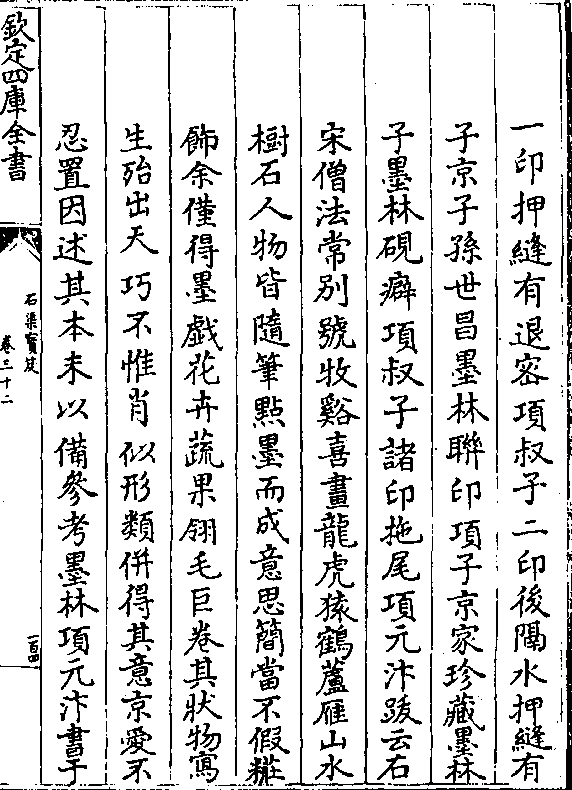 一印押縫有退密項叔子二印後隔水押縫有
子京子孫世昌墨林聯印項子京家珍藏墨林
子墨林硯癖項叔子諸印拖尾項元汴跋云右
宋僧法常別號牧谿喜畫龍虎猿鶴蘆雁山水
樹石人物皆隨筆點墨而成意思簡當不假糚
飾余僅得墨戲花卉蔬果翎毛巨卷其狀物寫
生殆出天巧不惟肖似形類併得其意京愛不
忍置因述其本末以備參考墨林項元汴書于
欽定四庫全書
石渠寳笈
卷三十二